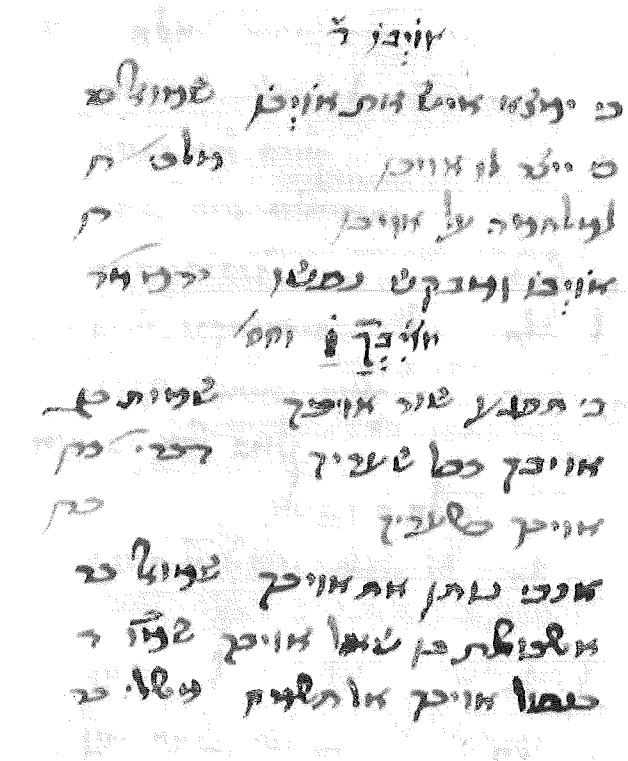 אוֹיְבוֹ ד
כי ימצא איש את אוֹיְבוֹ שמואל
כי ייצר לו אויבו מלכי ח
למלחמה על אויבו
אוֹיְבוֹ ומבקש נפשו ירמי מד
אוֹיִבְךָ ו וחס
כי תפגע שור אויבך שמות כג
אויבך בכל שעריך דברי כח
אויבך בשעריך כח
אנכי נותן את אויבך שמואל כד
איש בושת בן שאול אויבך שמו ד
בנפול אויבך אל תשמח משלי כד